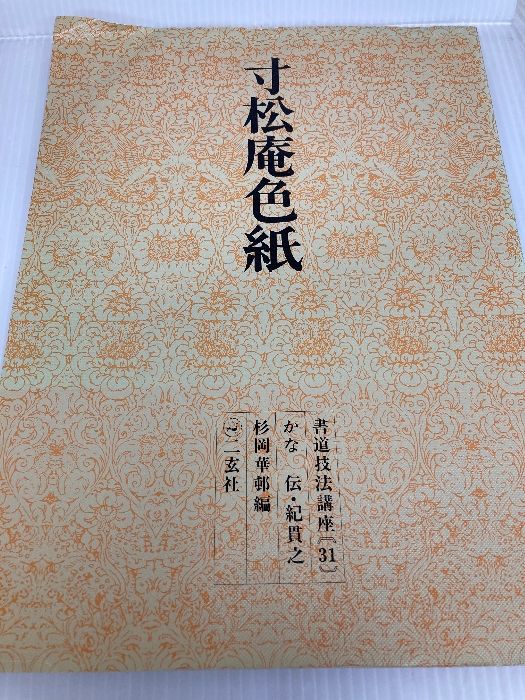 寸松庵色紙
書道技法講座〔31〕
かな 伝・紀貫之
杉岡華邨編
二玄社